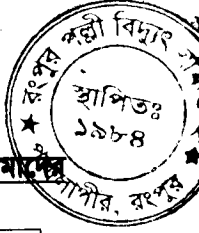 রংপুর পল্লী বিদ্যুৎ
স্থাপিতঃ
১৯৮৪
রংপুর